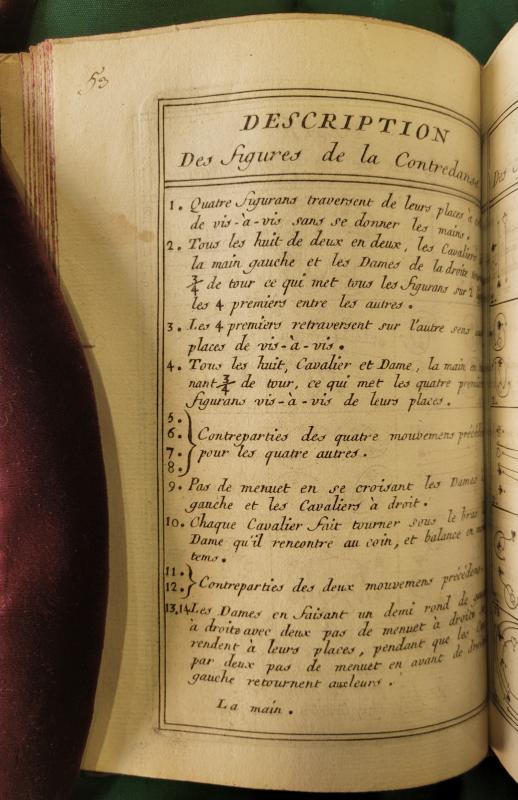 53
DESCRIPTION
Des figures de la Contredanse
1. Quatre figurans traversent de leurs places à
de vis-à-vis sans se donner les mains.
2. Tous les huit de deux en deux, les Cavaliers
la main gauche et les Dames de la droite
3/4 de tour ce qui met tous les figurans sur 2
les 4 premiers entre les autres.
3. Les 4 premiers retraversent sur l'autre sens
places de vis-à-vis.
4. Tous les huit, Cavalier et Dame, la main en
nant 3/4 de tour, ce qui met les quatre premiers
figurans vis-à-vis de leurs places.
5.
6. Contreparties des quatre mouvemens
7. pour les quatre autres.
8.
9. Pas de menuet en se croisant les Dames
gauche et les Cavaliers à droit.
10. Chaque Cavalier fait tourner sous le bras
Dame qu'il rencontre au coin, et balance en
tems.
11.
12. Contreparties des deux mouvemens précédens
13.14 Les Dames en faisant un demi rond de
à droite avec deux pas de menuet à droite
rendent à leurs places, pendant que les
par deux pas de menuet en avant de
gauche retournent aux leurs.
La main.